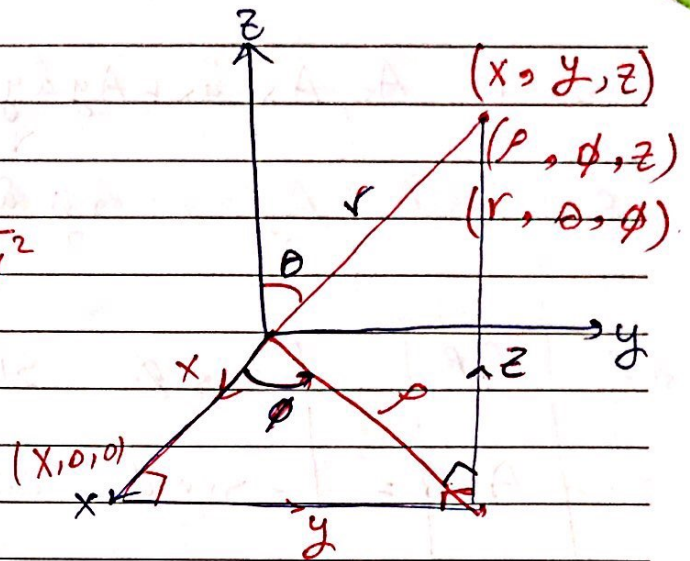 z
(x, y, z)
(ρ, ϕ, z)
(r, θ, ϕ)
r
2
θ
y
x
z
ϕ
ρ
(x,0,0)
x
y